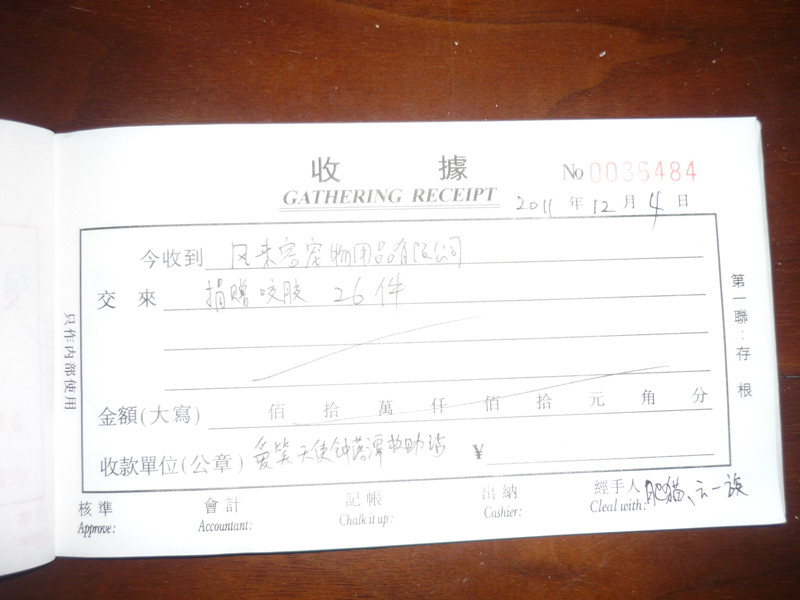 收 據
GATHERING RECEIPT
No 0036484
2011 年 12 月 4 日
今收到 风来客宠物用品有限公司
交 來 捐赠咬胶 26件
金額(大寫) 佰 拾 萬 仟 佰 拾 元 角 分
收款單位(公章) 爱笑天使钟落潭救助站 ¥
核準 會計 記帳 出納 經手人 肥猫、云一族
Approve: Accountant: Chalk it up: Cashier: Cleal with:
第一聯:存根
只作内部使用